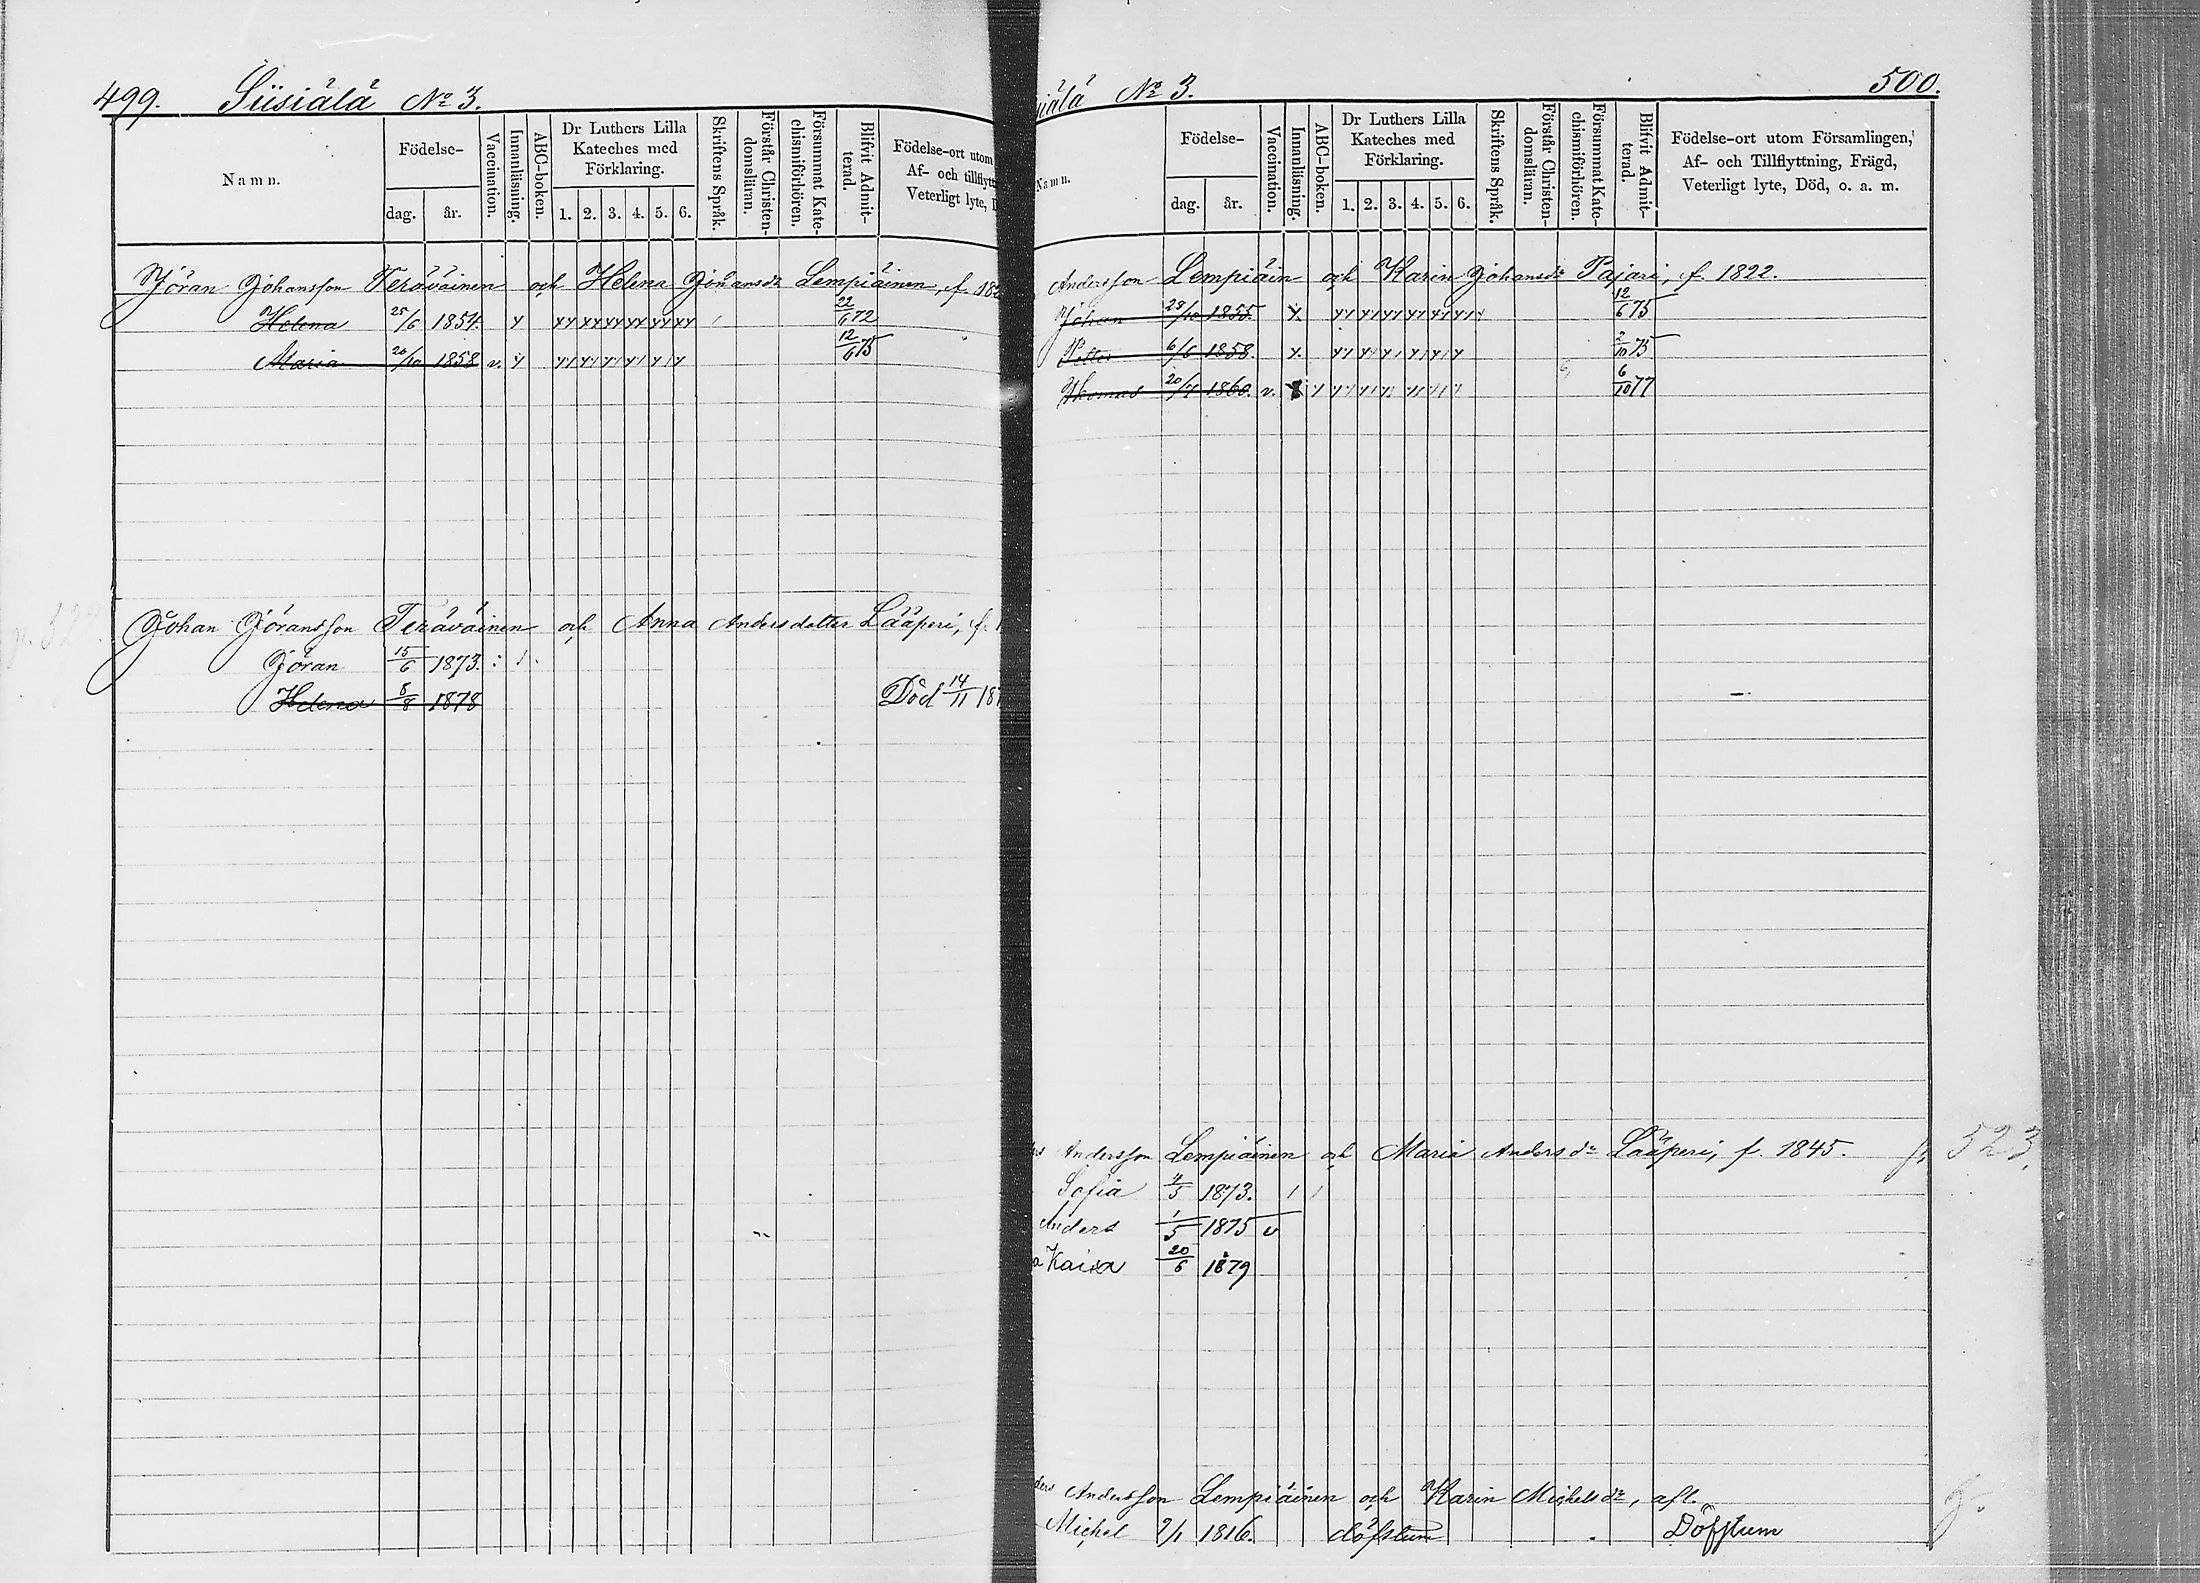 499. Siisiälä No 3.
Namn.
Födelse-
dag. år.
Vaccination.
Innanläsning.
ABC-boken.
Dr Luthers Lilla
Kateches med
Förklaring.
1. 2. 3. 4. 5. 6.
Skriftens Språk.
Förstår Christen-
domsläran.
Försummat Kate-
chismiförhören.
Blifvit Admit-
terad.
Födelse-ort utom
Af- och tillflytt
Veterligt lyte,
Jöran Johansson Teräväinen och Helena Johansdr Lempiäinen, f. 182
Helena 25/6 1854. y yy yy yy yy yy yy 22/6 72
Maria 20/10 1858 v. y 12/6 75
Johan Jöransson Teräväinen och Anna Andersdotter Lääperi, f. 1
Jöran 15/6 1873.
Helena 8/8 1878 Död 14/11 187
iälä No 3. 500.
Namn.
Födelse-
dag. år.
Vaccination.
Innanläsning.
ABC-boken.
Dr Luthers Lilla
Kateches med
Förklaring.
1. 2. 3. 4. 5. 6.
Skriftens Språk.
Förstår Christen-
domsläran.
Försummat Kate-
chismiförhören.
Blifvit Admit-
terad.
Födelse-ort utom Församlingen,
Af- och Tillflyttning, Frägd,
Veterligt lyte, Död, o. a. m.
Andersson Lempiäin och Karin Johansdr Pajari, f. 1822.
Johan 28/10 1855. y. 12/6 75
Petter 6/6 1858. y. 2/10 75
Thomas 1860. v. 6/10 77
rs Andersson Lempiäinen och Maria Andersdr Lääperi, f. 1845. f. 523.
Sofia 4/5 1873.
Anders 1/5 1875 v
a Kaisa 20/6 1879
ders Andersson Lempiäinen och Karin Michelsdr, afl.
Michel 2/1 1816. döfstum Döfstum